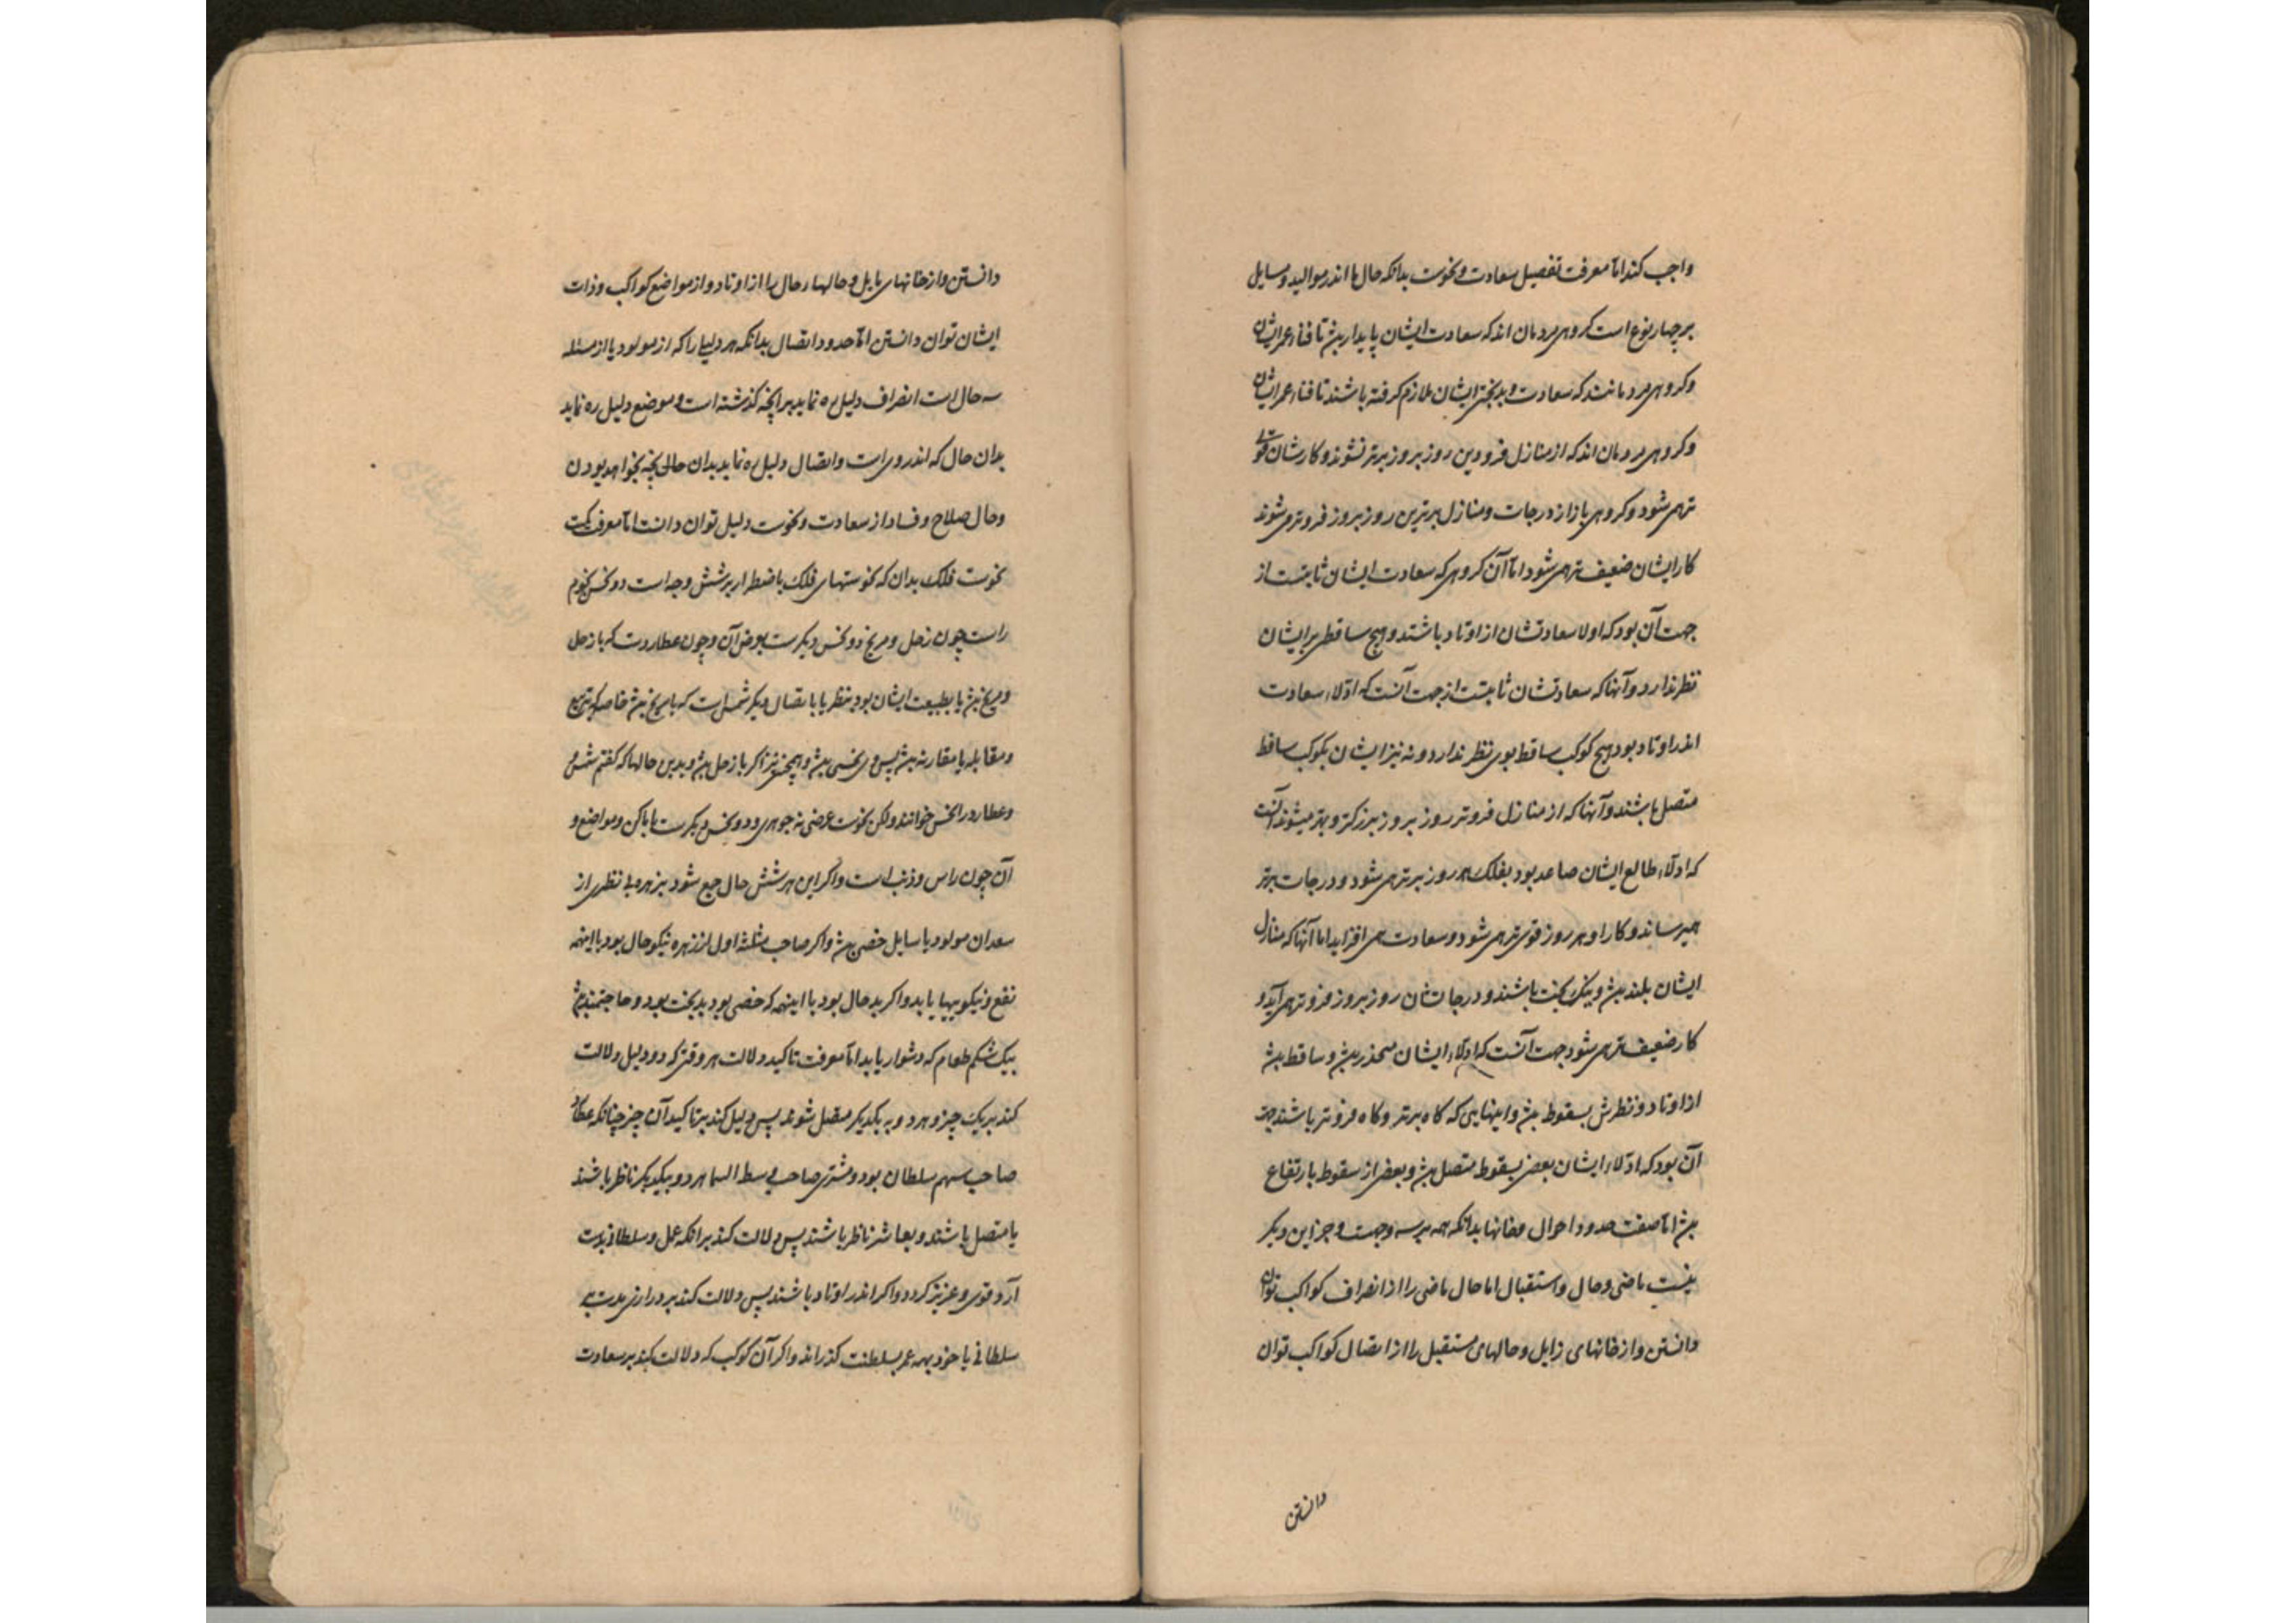 واجب کند اما معرفت تفصیل سعادت و نحوست بدانکه حال ما اندر موالید و مسایل
بر چهار نوع است کروهی مردمان اند که سعادت ایشان پایدار بش تا فناء عمر ایشان
وکروهی مردمانند که سعادت و بدبختی ایشان ملازم کرفته باشند تا فناء عمر ایشان
وکروهی مردمان اند که از منازل فرودین روز بروز برتر نشوند و کارشان قوی
تر همی شود و کروهی باز از درجات و منازل برترین روز بروز فروتر می شوند
کار ایشان ضعیف تر همی شود اما آن کروهی که سعادت ایشان ثابتست از
جهت آن بود که اولا سعادتشان از اوتاد باشند و هیچ ساقطی بر ایشان
نظر ندارد و آنها که سعادتشان ثابتست از جهت آنست که ادلاء سعادت
اندر اوتاد بود هیچ کوکب ساقط بوی نظر ندارد و نه نیز ایشان بکوکب ساقط
متصل باشند و آنها که از منازل فروتر روز بروز بزرکتر و بهتر میشوند آنست
که ادلاء طالع ایشان صاعد بود بفلک هر روز برتر همی شود و درجات برتر
همیرساند و کار او هر روز قوی تر همی شود و سعادت همی افزاید اما آنها که منازل
ایشان بلند بش و نیک بخت باشند و درجاتشان روز بروز فروتر همی آید و
کار ضعیف تر همی شود جهت آنست که ادلاء ایشان منحدر بش و ساقط بش
از اوتاد و نظرش بسقوط بش و اینهایی که کاه برتر و کاه فروتر باشند جهت
آن بود که ادلاء ایشان بعضی بسقوط متصل بش و بعضی از سقوط بارتفاع
بش اما صفت حدود احوال و خانها بدانکه همه بر سه وجهست و جز این دیکر
نیست ماضی و حال و استقبال اما حال ماضی را از انصراف کواکب توان
دانستن و از خانهای زایل و حالهای مستقبل را از اتصال کواکب توان
دانستن
دانستن و از خانهای مایل و حالهاء حال را از اوتاد و از مواضع کواکب و ذات
ایشان توان دانستن اما حدود اتصال بدانکه هر دلیلی را که از مولود یا از مسئله
سه حال است انصراف دلیل ره نماید بر آنچه کذشته است و موضع دلیل ره نماید
بدان حال که اندر وی است و اتصال دلیل ره نماید بدان حالی که بخواهد بودن
و حال صلاح و فساد از سعادت و نحوست دلیل توان دانست اما معرفت
نحوست فلک بدان که نحوستهای فلک باضطرار بر شش وجه است دو نحس نجوم
راست چون زحل و مریخ دو نحس دیکرست بعرض آن و چون عطاردست که با زحل
و مریخ بش یا بطبیعت ایشان بود بنظر یا باتصال دیکر شمس است که با مریخ بش خاصه که تربیع
و مقابله یا مقارنه بش پس وی نحس بش و همچنین نیز اکر با زحل بش و بدین حالها که کفتم شمس
و عطارد را نحس خوانند ولکن نحوست عرضی نه جوهری و دو نحس دیکرست باماکن و مواضع و
آن چون راس و ذنب است و اکر این هر شش حال جمع شود بزهره بی نظری از
سعدان مولود یا سایل خصی بش و اکر صاحب مثلثه اول از زهره نیکو حال بود با اینهمه
نفع و نیکوییها یابد و اکر بد حال بود با اینهمه که خصی بود بدبخت بود و حاجتمند بش
بیک شکم طعام که دشوار یابد اما معرفت تاکید دلالت هر وقتی که دو دلیل دلالت
کند بر یک چیز و هر دو به یکدیکر متصل شوند پس دلیل کند بر تاکید آن چیز چنانکه عطارد
صاحب سهم سلطان بود و مشتری صاحب وسط السما هر دو بیکدیکر ناظر باشند
یا متصل باشند و بعاشر ناظر باشند پس دلالت کند بر آنکه عمل و سلطانی بدست
آرد قوی و عزیز کردد و اکر اندر اوتاد باشند پس دلالت کند بر درازی مدت
سلطانی یا خود بهمه عمر بسلطنت کذراند و اکر آن کوکب که دلالت کند بر سعادت